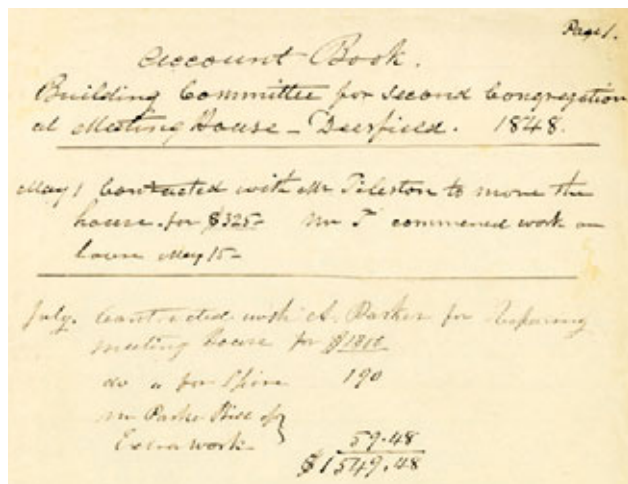 Page 1.
Account Book.
Building Committee for Second Congregation
al Meeting House – Deerfield. 1848.
May 1 Contracted with Mr Tileston to move the
house for $325– Mr T commenced work on
house May 15–
July. Contracted with A. Parker for Repairing
meeting house for $1300
do " for Spire 190
Mr Parker Bill of
Extra work 59.48
$1549.48